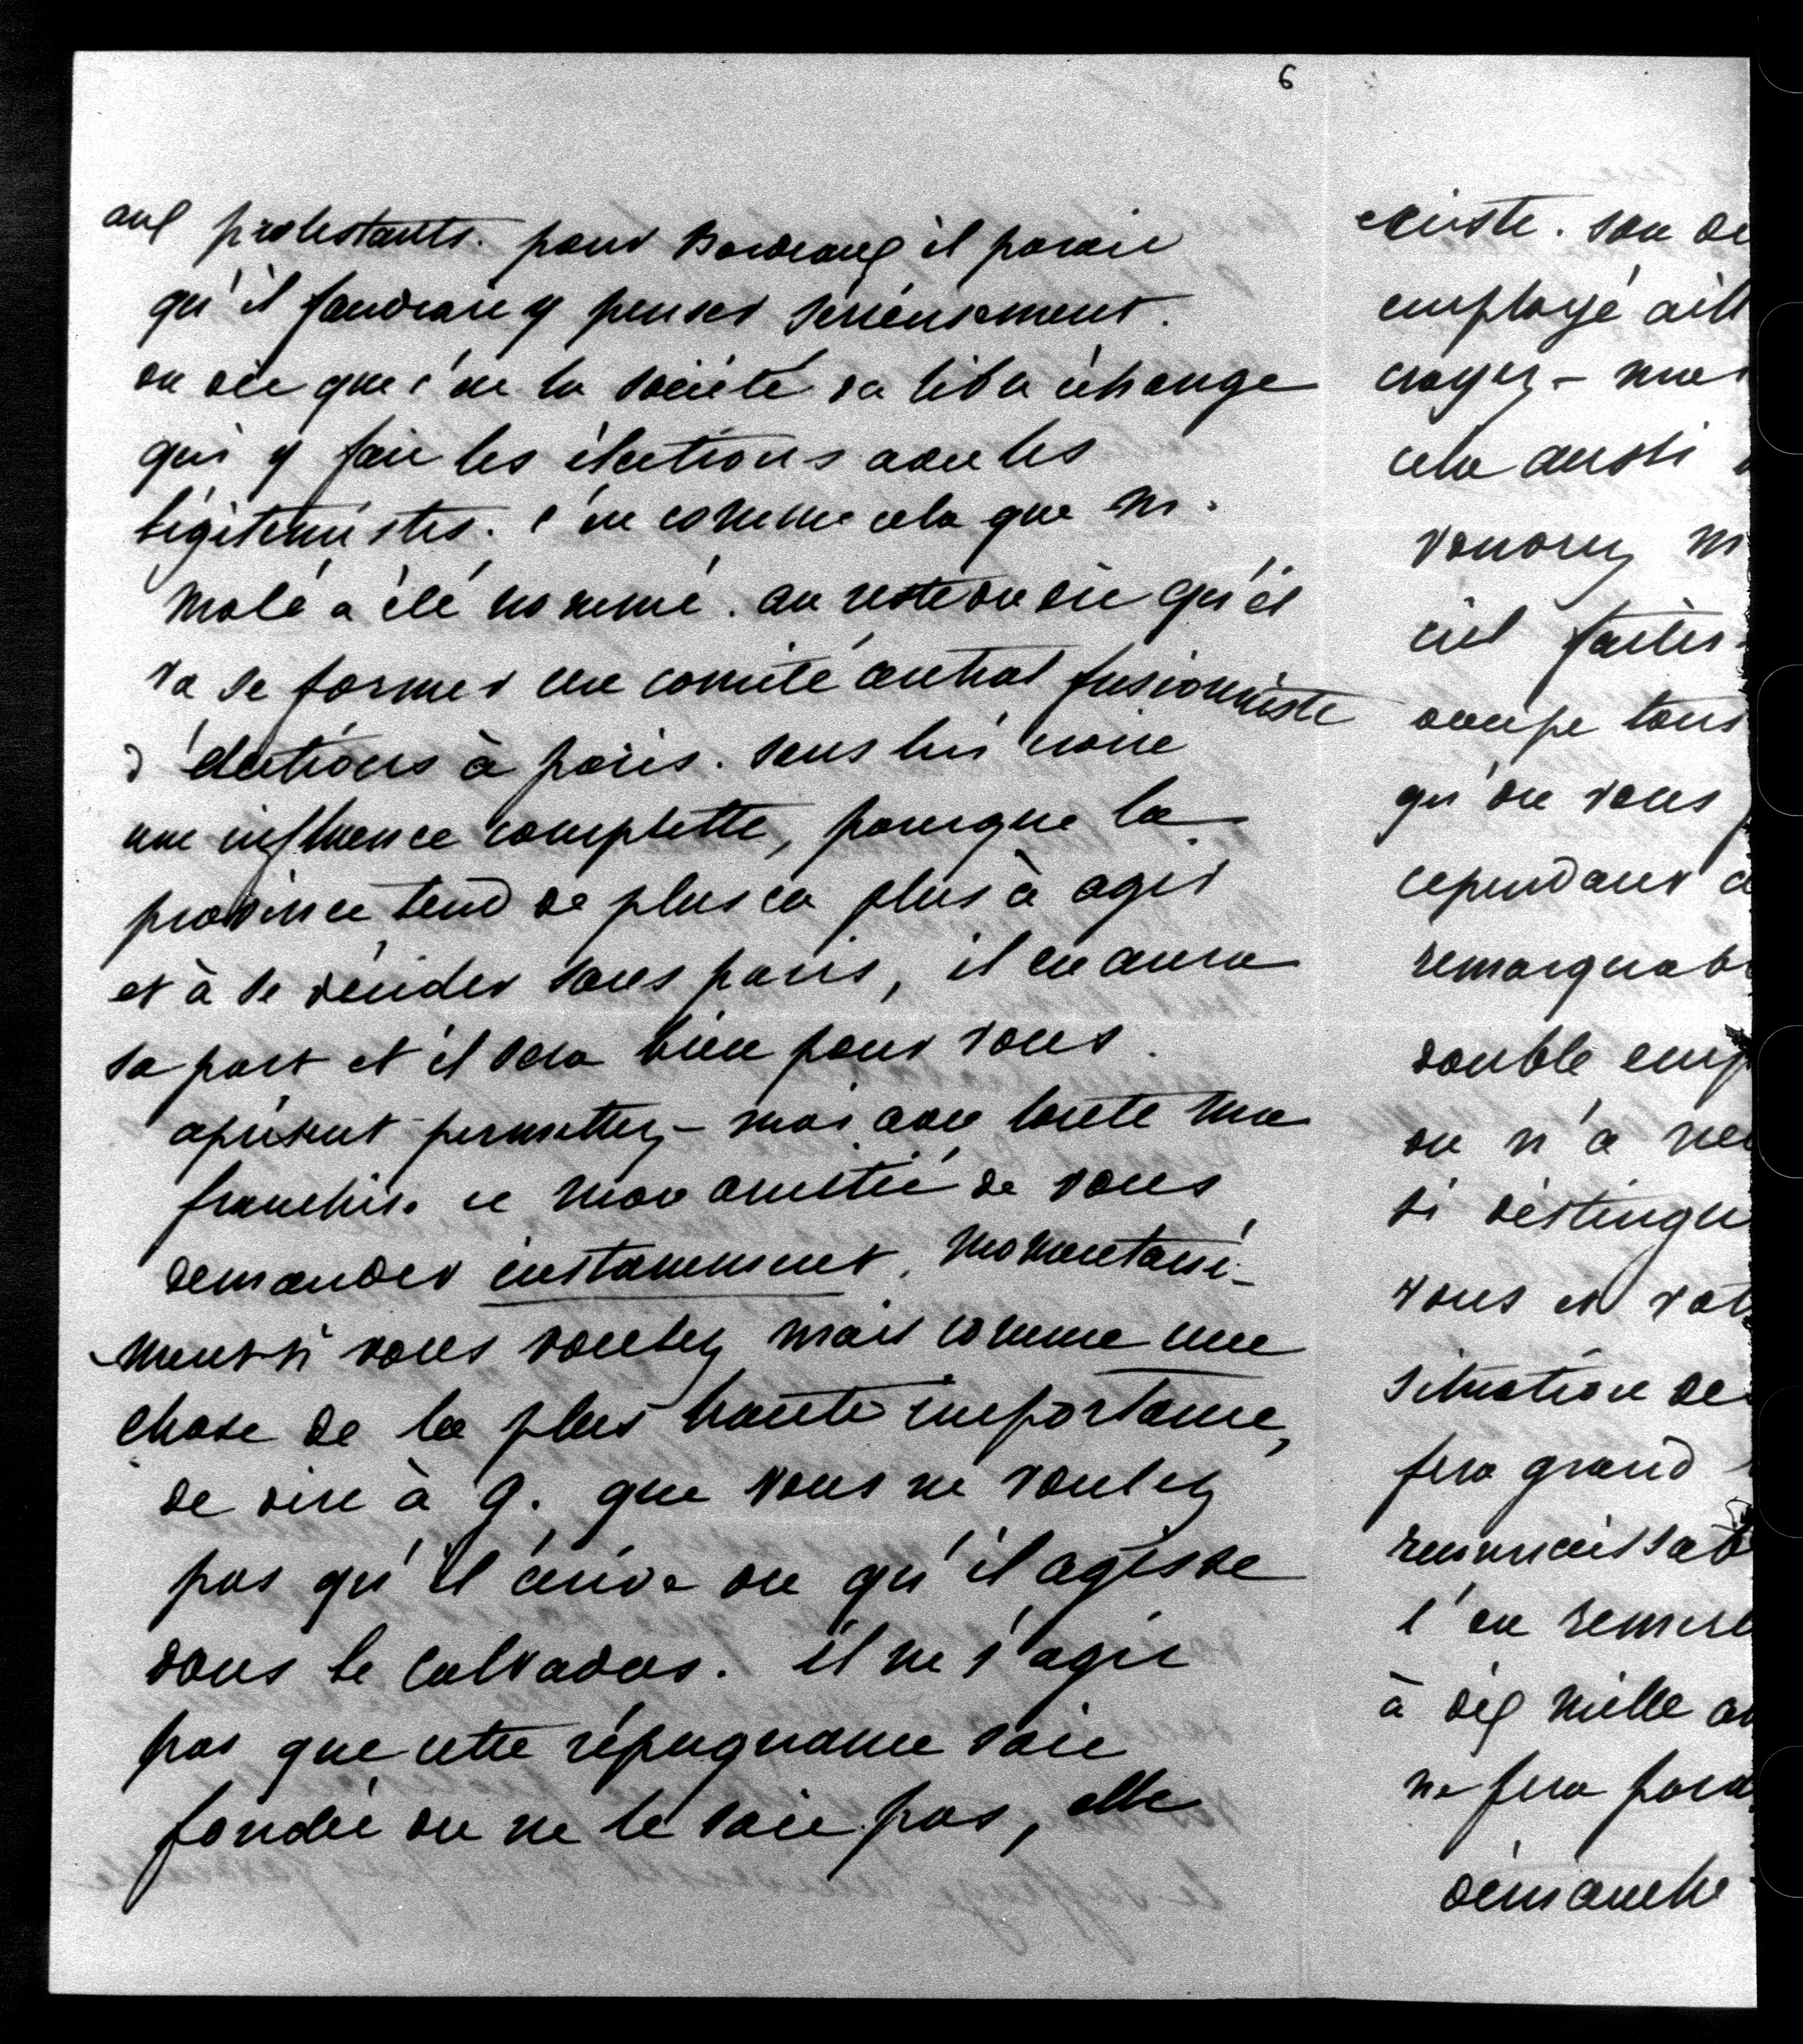 6
aux protestants. pour Bordeaux il parait
qu'il faudrait y penser serieusement.
on dit que c'est la société du libre échange
qui y fait les élections avec les
légitimistes. c'est comme cela que M.
Molé a été nommé. au reste on dit qu'il
va se former un comité central fusionniste
d'élections à paris. sans lui croire
une influence complette, parceque la
province tend de plus en plus à agir
et à se décider sans paris, il en aura
sa part et il sera bien pour vous.
aprésent permettez-moi avec toute ma
franchise et mon amitié de vous
demander instamment, momentané-
ment si vous voulez mais comme une
chose de la plus haute importance,
de dire à G. que vous ne voulez
pas qu'il écrive ou qu'il agisse
dans le Calvados. il ne s'agit
pas que cette répugnance soit
fondée ou ne le soit pas, elle
existe. son de
employé aill
croyez-moi
cela aussi
voudrez m
ciel faites
occupe tous
qu'on vous
cependant a
remarquab
double emp
on n'a
si distingu
vous et vot
situation de
fera grand
reconnaissa
l'en remer
à dix mille
ne fera
dimanche